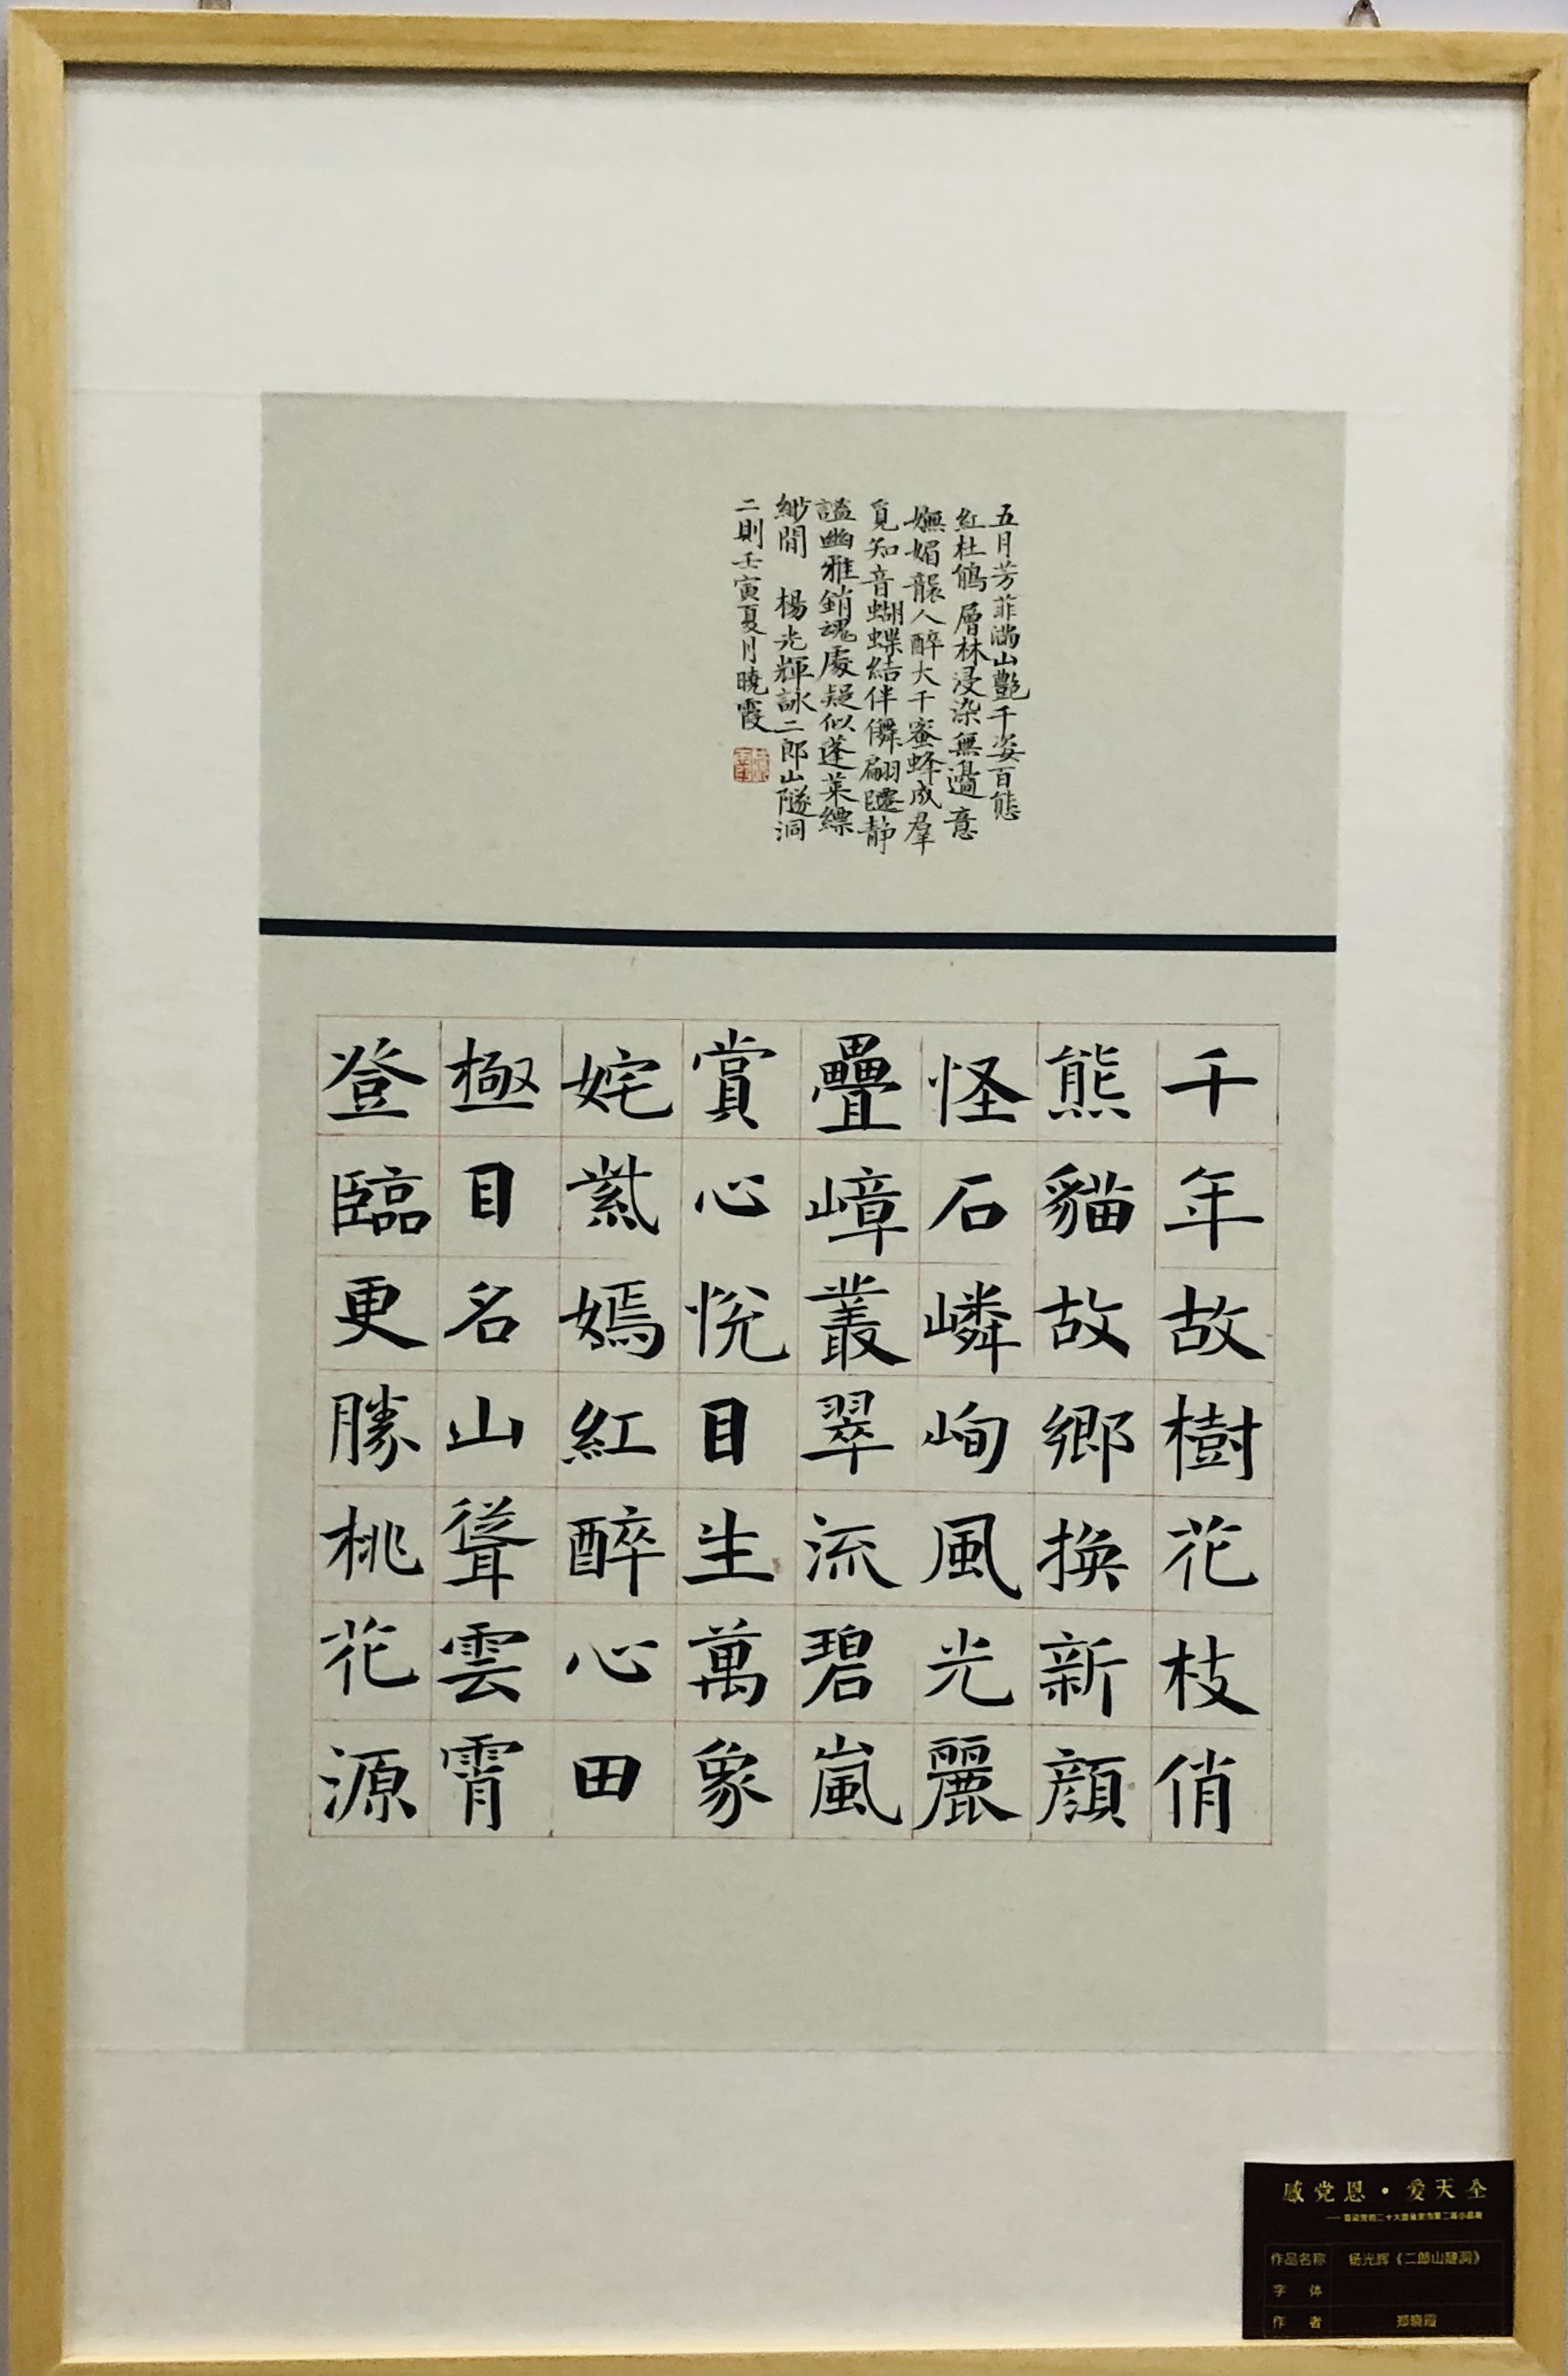 五月芳菲滿山艷千姿百態
紅杜鵑層林浸染無邊意
嫵媚襲人醉大千蜜蜂成羣
覓知音蝴蝶結伴儛翩躚静
謐幽雅銷魂處疑似蓬萊縹
緲間 楊光輝詠二郎山隧洞
二則壬寅夏月曉霞
千年故樹花枝俏
熊貓故鄉換新顔
怪石嶙峋風光麗
疊嶂叢翠流碧嵐
賞心悅目生萬象
姹紫嫣紅醉心田
極目名山聳雲霄
登臨更勝桃花源
感党恩·爱天全
作品名称 杨光辉《二郎山隧洞》
字 体
作 者 郑晓霞